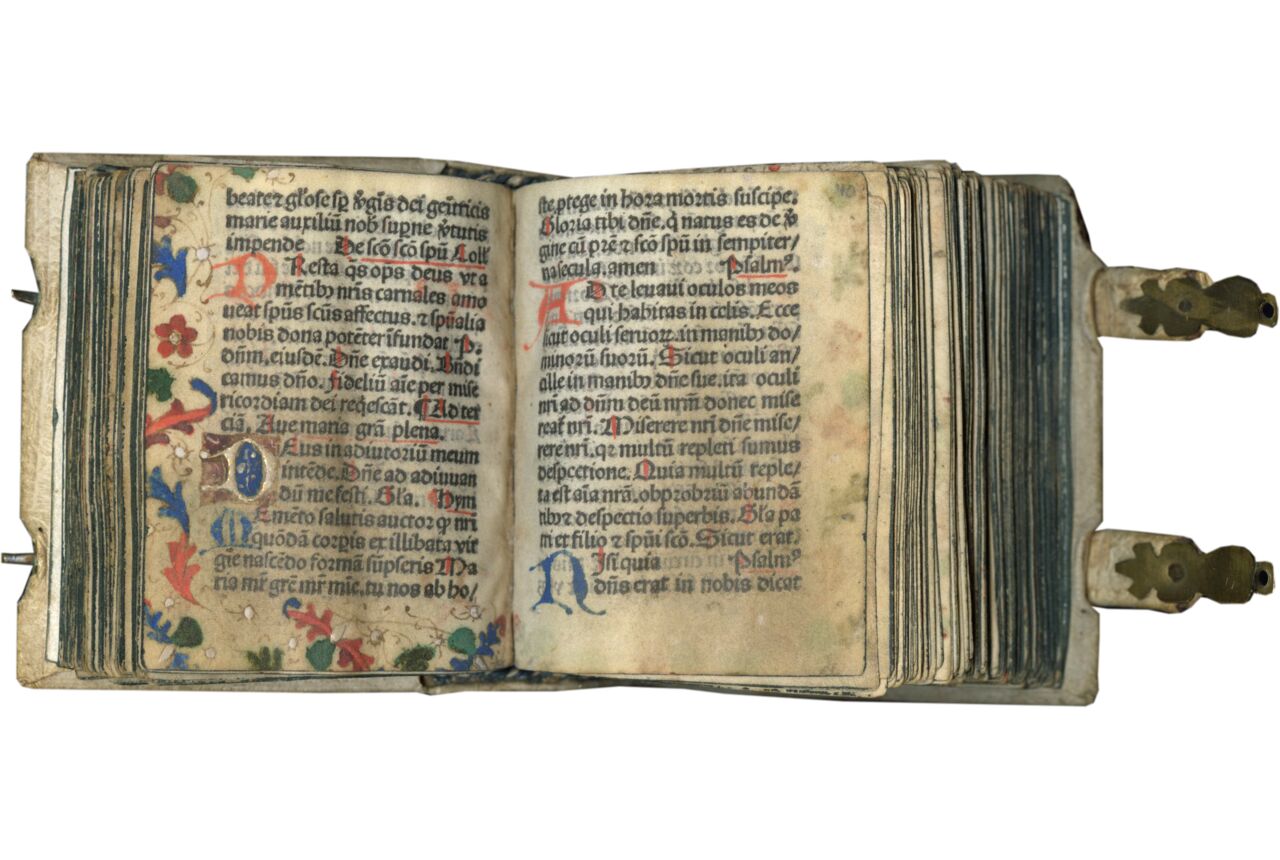 beate ⁊ gl̄ose sp̄ v̾gīs dei gen̄tricis
marie auxiliū nob̄ sup̄ne v̾tutis
impende De scō scō spū Coll̄
PResta q̄s op̄s deus vt a
mētibꝰ nr̄is carnales amo
ueat sp̄us sc̄us affectus. ⁊ sp̄ualia
nobis dona potēter īfundat P.
dn̄m, eiusdē. Dn̄e exaudi. Bn̄di
camus dn̄o. fideliū aīe per mise
ricordiam dei reqͤescāt. ¶ Ad ter
ciā. Aue maria grā plena.
DEus in adiutoriū meum
intēde. Dn̄e ad adiuuan
dū me festi. Gl̄a. Hym
MEmēto salutis auctor ꝙ nr̄i
quōdā corꝑis ex illibata vir
gīe nascēdo formā sūpseris Ma
ria mr̄ grē mr̄ mīe. tu nos ab ho/
ste ꝓtege in hora mortis suscipe.
Gloria tibi dn̄e. q̄ natus es de v̾
gine cū pr̄e ⁊ sc̄o spū in sempiter/
na secula. amen Psalmꝰ.
AD te leuaui oculos meos
qui habitas in celis. Ecce
sicut oculi seruoꝝ in manibꝰ do/
minorū suorū. Sicut oculi an/
cille in manibꝰ dn̄e sue. ita oculi
nr̄i ad dn̄m deū nr̄m donec mise
reat̄ nr̄i. Miserere nr̄i dn̄e mise/
rere nr̄i. qꝛ multū repleti sumus
despectione. Quia multū reple/
ta est aīa nr̄a. obprobriū abundā
tibꝰ ⁊ despectio superbis. Gl̄a pa
tri et filio ⁊ spūi scō. Sicut erat/
NIsi quia Psalmꝰ
dn̄s erat in nobis dicat